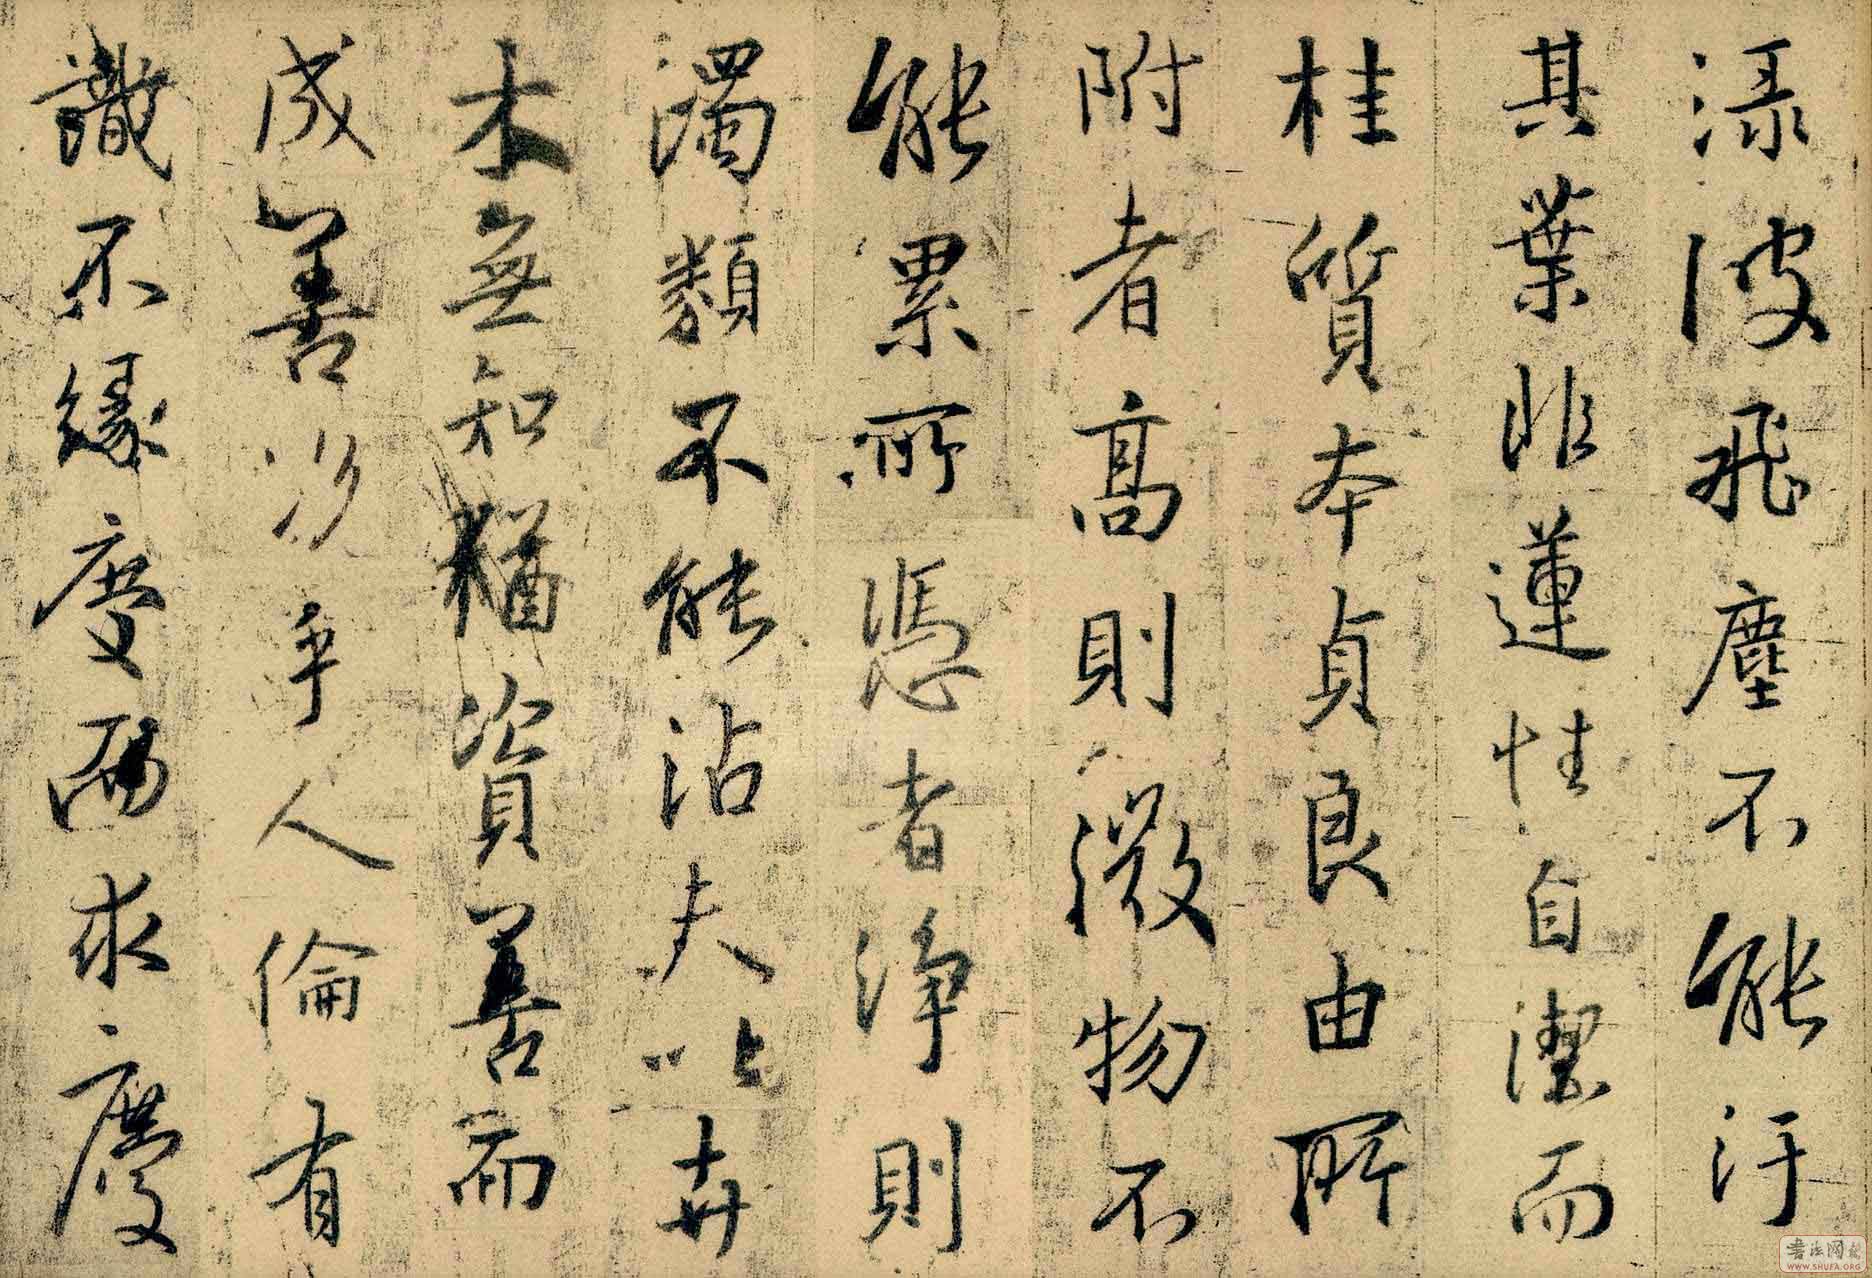 渌波飛塵不能汙
其葉非蓮性自潔而
桂質本貞良由所
附者高則微物不
能累所憑者淨則
濁類不能沾夫以卉
木無知猶資善而
成善況乎人倫有
識不緣慶而求慶
書法网
WWW.SHUFA.ORG